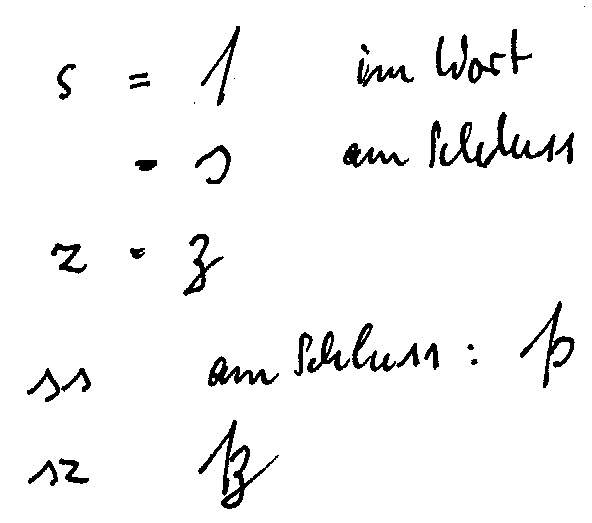 s = ſ im Wort
= s am Schluss
z = ʒ
ss am Schluss: ß
sz ſʒ